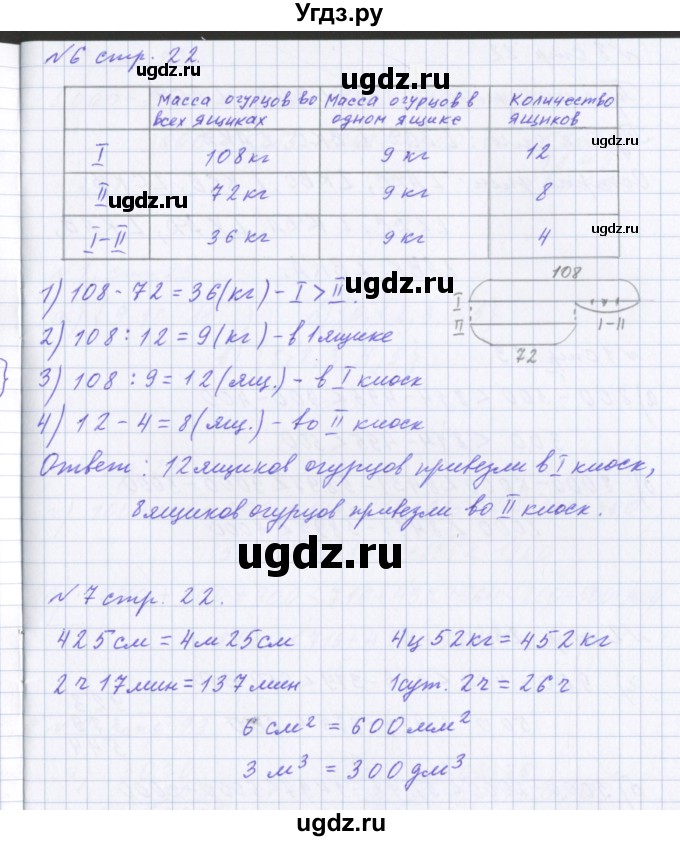 Угдз.ру
№6 стр. 22.
ugdz.ru
Масса огурцов во всех ящиках | Масса огурцов в одном ящике | Количество ящиков
ugdz.ru
I | 108 кг | 9 кг | 12
II | 72 кг | 9 кг | 8
ugdz.ru
I-II | 36 кг | 9 кг | 4
ugdz.ru
1) 108 - 72 = 36 (кг) - I > II.
ugdz.ru
108
I
II
I-II
72
2) 108 : 12 = 9 (кг) - в 1 ящике
3) 108 : 9 = 12 (ящ.) - в I киоск
4) 12 - 4 = 8 (ящ.) - во II киоск
Ответ: 12 ящиков огурцов привезли в I киоск,
8 ящиков огурцов привезли во II киоск.
ugdz.ru
№7 стр. 22.
425 см = 4 м 25 см
4 ц 52 кг = 452 кг
2 ч 17 мин = 137 мин
1 сут. 2 ч = 26 ч
6 см² = 600 мм²
3 м³ = 300 дм³
ugdz.ru
ugdz.ru